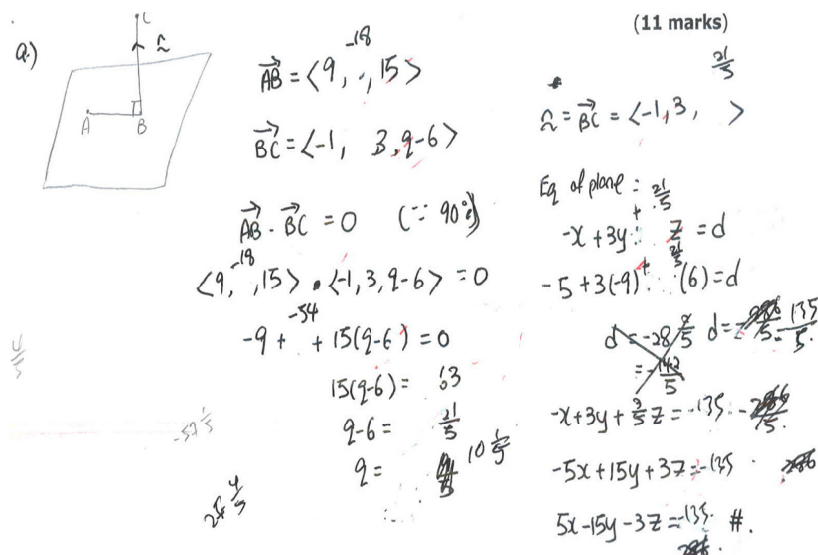 (11 marks)
a.)
C
n
A
B
AB = <9, -18, 15>
BC = <-1, 3, q-6>
AB . BC = 0 (∵ 90°)
<9, -18, 15> . <-1, 3, q-6> = 0
-9 + -54 + 15(q-6) = 0
15(q-6) = 63
q-6 = 21/5
q = 10 1/5
21/5
n = BC = <-1, 3, >
Eq of plane :
-x + 3y + 21/5 z = d
-5 + 3(-9) + 21/5 (6) = d
d = -28 2/5
= -142/5
d = 135/5
-x + 3y + z = -135
-5x + 15y + 3z = -135
5x - 15y - 3z = -135. #.
4/5